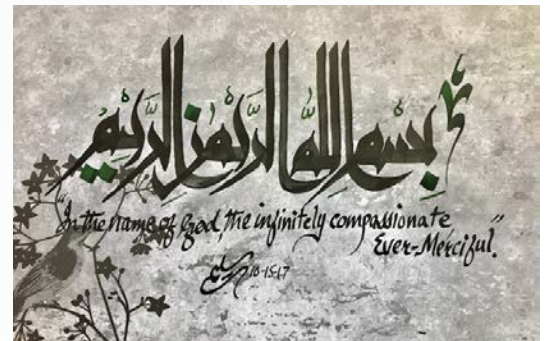 بِسْمِ اللّٰهِ الرَّحْمٰنِ الرَّحِيْمِ
"In the name of God, the infinitely compassionate
Ever-Merciful."
10-15-17